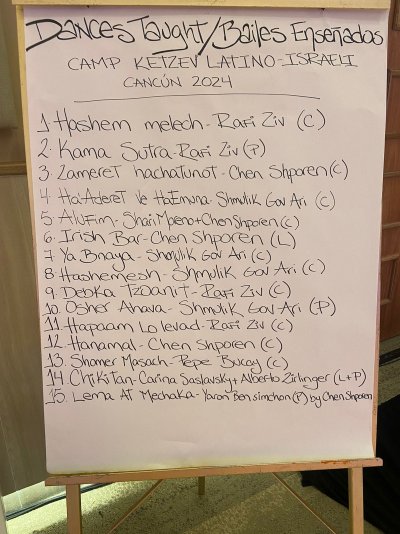 Dances Taught/Bailes Enseñados
CAMP KETZEV LATINO-ISRAELI
CANCÚN 2024
1. Hashem melech - Rafi Ziv (C)
2. Kama Sutra - Rafi Ziv (P)
3. Zameret hachatunot - Chen Shporen (C)
4. Ha'Aderet Ve HaEmuna - Shmulik Gov Ari (C)
5. Alufim - Shari Moreno + Chen Shporen (C)
6. Irish Bar - Chen Shporen (L)
7. Ya Bnaya - Shmulik Gov Ari (C)
8. Hashemesh - Shmulik Gov Ari (C)
9. Debka Tzoanit - Rafi Ziv (C)
10. Osher Ahava - Shmulik Gov Ari (P)
11. Hapaam Lo levad - Rafi Ziv (C)
12. Hanamal - Chen Shporen (C)
13. Shomer Masach - Pepe Bucay (C)
14. Chikitan - Carina Saslavsky + Alberto Zirlinger (L+P)
15. Lema At Mechaka - Yaron Ben simchon (P) by Chen Shporen